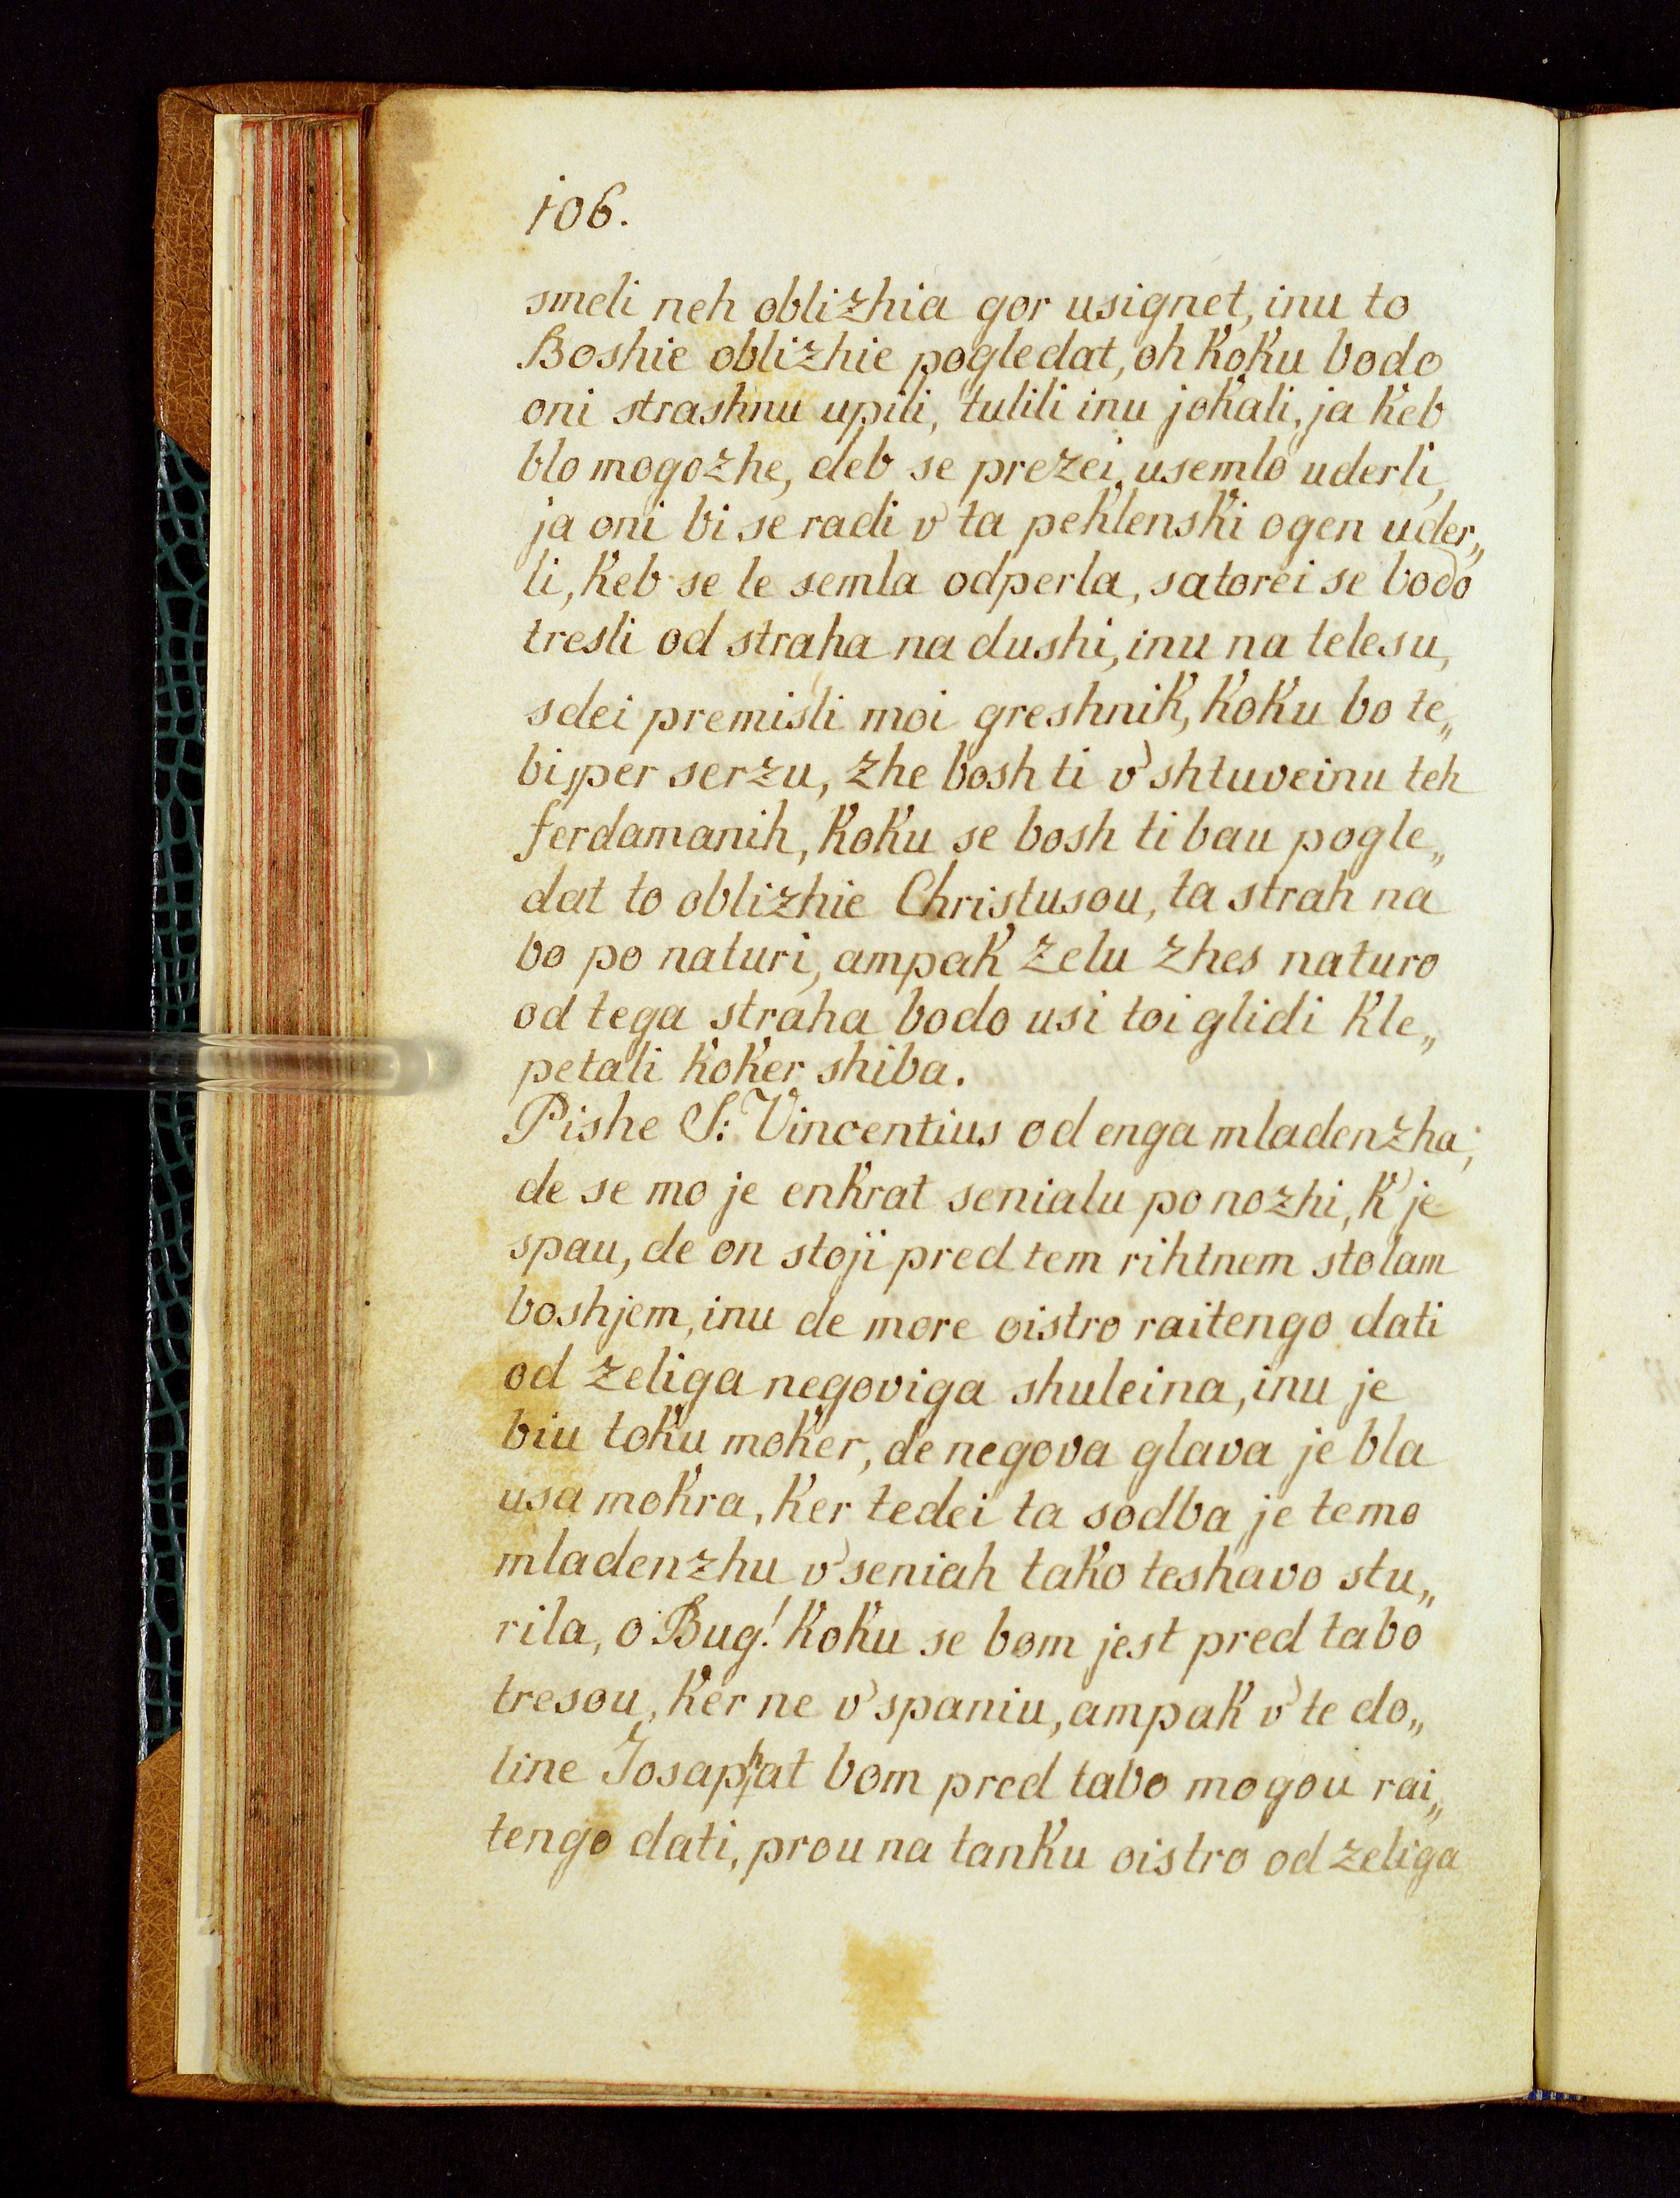 106.
smeli neh oblizhia gor usignet, inu to
Boshie oblizhie pogledat, oh koku bodo
oni strashnu upili, tulili inu jokali, ja keb
blo mogozhe, deb se prezei usemlo uderli,
ja oni bi se radi v' ta peklenski ogen uder„
li, keb se le semla odperla, satorei se bodo
tresli od straha na dushi, inu na telesu,
sdei premisli moi greshnik, koku bo te„
bi per serzu, zhe bosh ti v' shtuveinu teh
ferdamanih, koku se bosh ti bau pogle„
dat to oblizhie Christusou, ta strah na
bo po naturi, ampak zelu zhes naturo
od tega straha bodo usi toi glidi kle„
petali koker shiba.
Pishe S: Vincentius od enga mladenzha,
de se mo je enkrat senialu po nozhi, k' je
spau, de on stoji pred tem rihtnem stolam
boshjem, inu de more oistro raitengo dati
od zeliga negoviga shuleina, inu je
biu toku moker, de negova glava je bla
usa mokra, ker tedei ta sodba je temo
mladenzhu v' seniah tako teshavo stu„
rila, o Bug! koku se bom jest pred tabo
tresou, ker ne v' spaniu, ampak v' te do„
line Josaphat bom pred tabo mogou rai„
tengo dati, prou na tanku oistro od zeliga